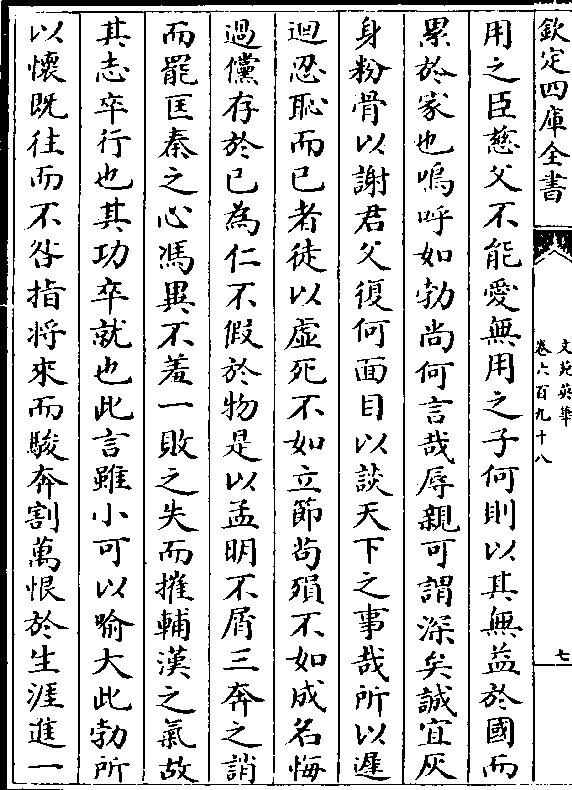 欽定四庫全書
文苑英華
卷六百九十八
七
用之臣慈父不能愛無用之子何則以其無益於國而
累於家也嗚呼如勃尚何言哉辱親可謂深矣誠宜灰
身粉骨以謝君父復何面目以談天下之事哉所以遲
迴忍恥而已者徒以虛死不如立節茍殞不如成名悔
過儻存於已為仁不假於物是以孟明不屑三奔之誚
而罷匡秦之心馮異不羞一敗之失而摧輔漢之氣故
其志卒行也其功卒就也此言雖小可以喻大此勃所
以懷既往而不咎指將來而駿奔割萬恨於生涯進一